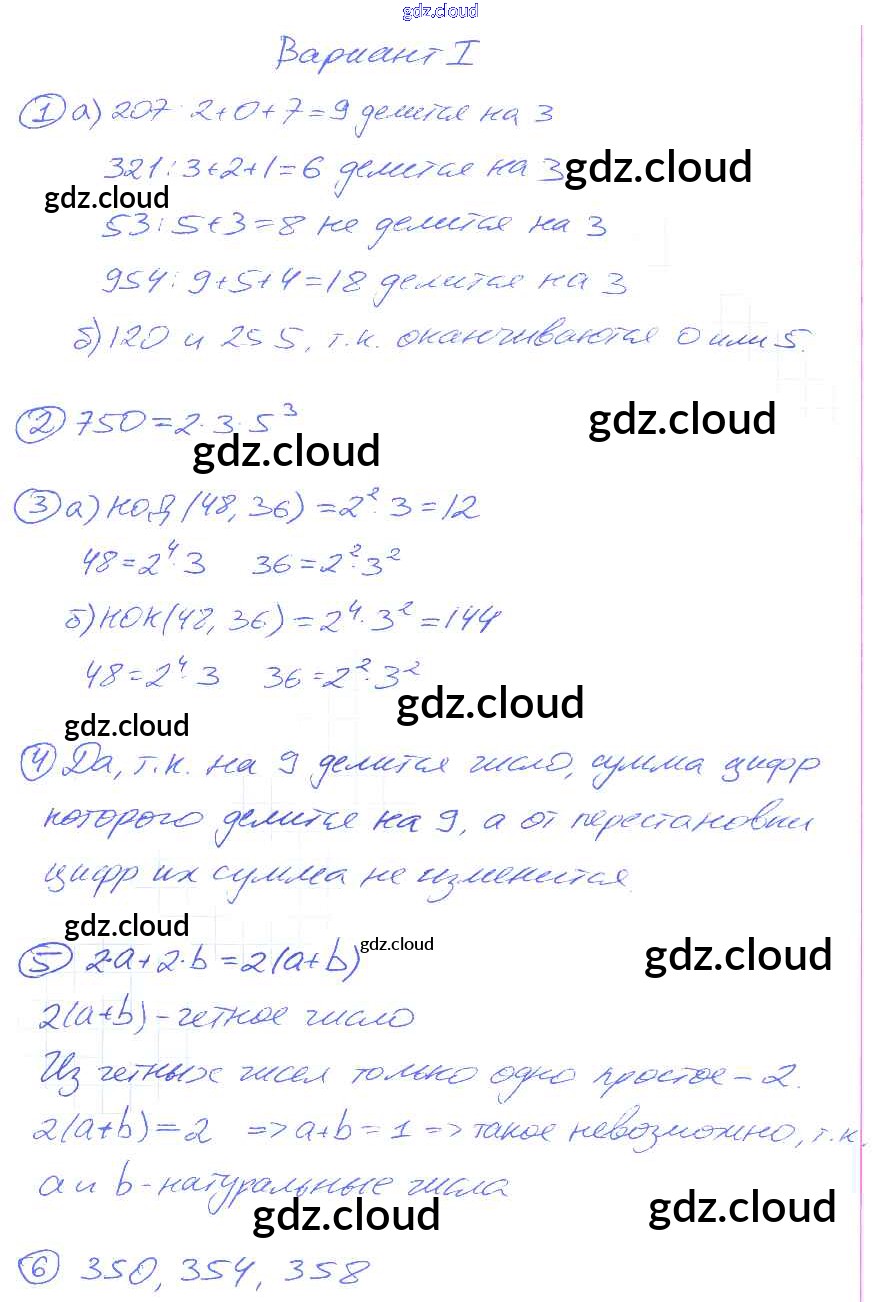 gdz.cloud
Вариант I
① а) 207: 2+0+7=9 делится на 3
321: 3+2+1=6 делится на 3 gdz.cloud
gdz.cloud
53: 5+3=8 не делится на 3
954: 9+5+4=18 делится на 3
б) 120 и 255, т.к. оканчиваются 0 или 5.
② 750=2·3·5³ gdz.cloud
gdz.cloud
③ а) НОД (48, 36) = 2²·3=12
48=2⁴·3 36=2²·3²
б) НОК(48, 36) = 2⁴·3²=144
48=2⁴·3 36=2²·3²
gdz.cloud
gdz.cloud
④ Да, т.к. на 9 делится число, сумма цифр
которого делится на 9, а от перестановки
цифр их сумма не изменится.
gdz.cloud
⑤ 2·a+2·b=2(a+b) gdz.cloud gdz.cloud
2(a+b) – четное число
Из четных чисел только одно простое – 2.
2(a+b)=2 => a+b=1 => такое невозможно, т.к.
a и b - натуральные числа
gdz.cloud gdz.cloud
⑥ 350, 354, 358